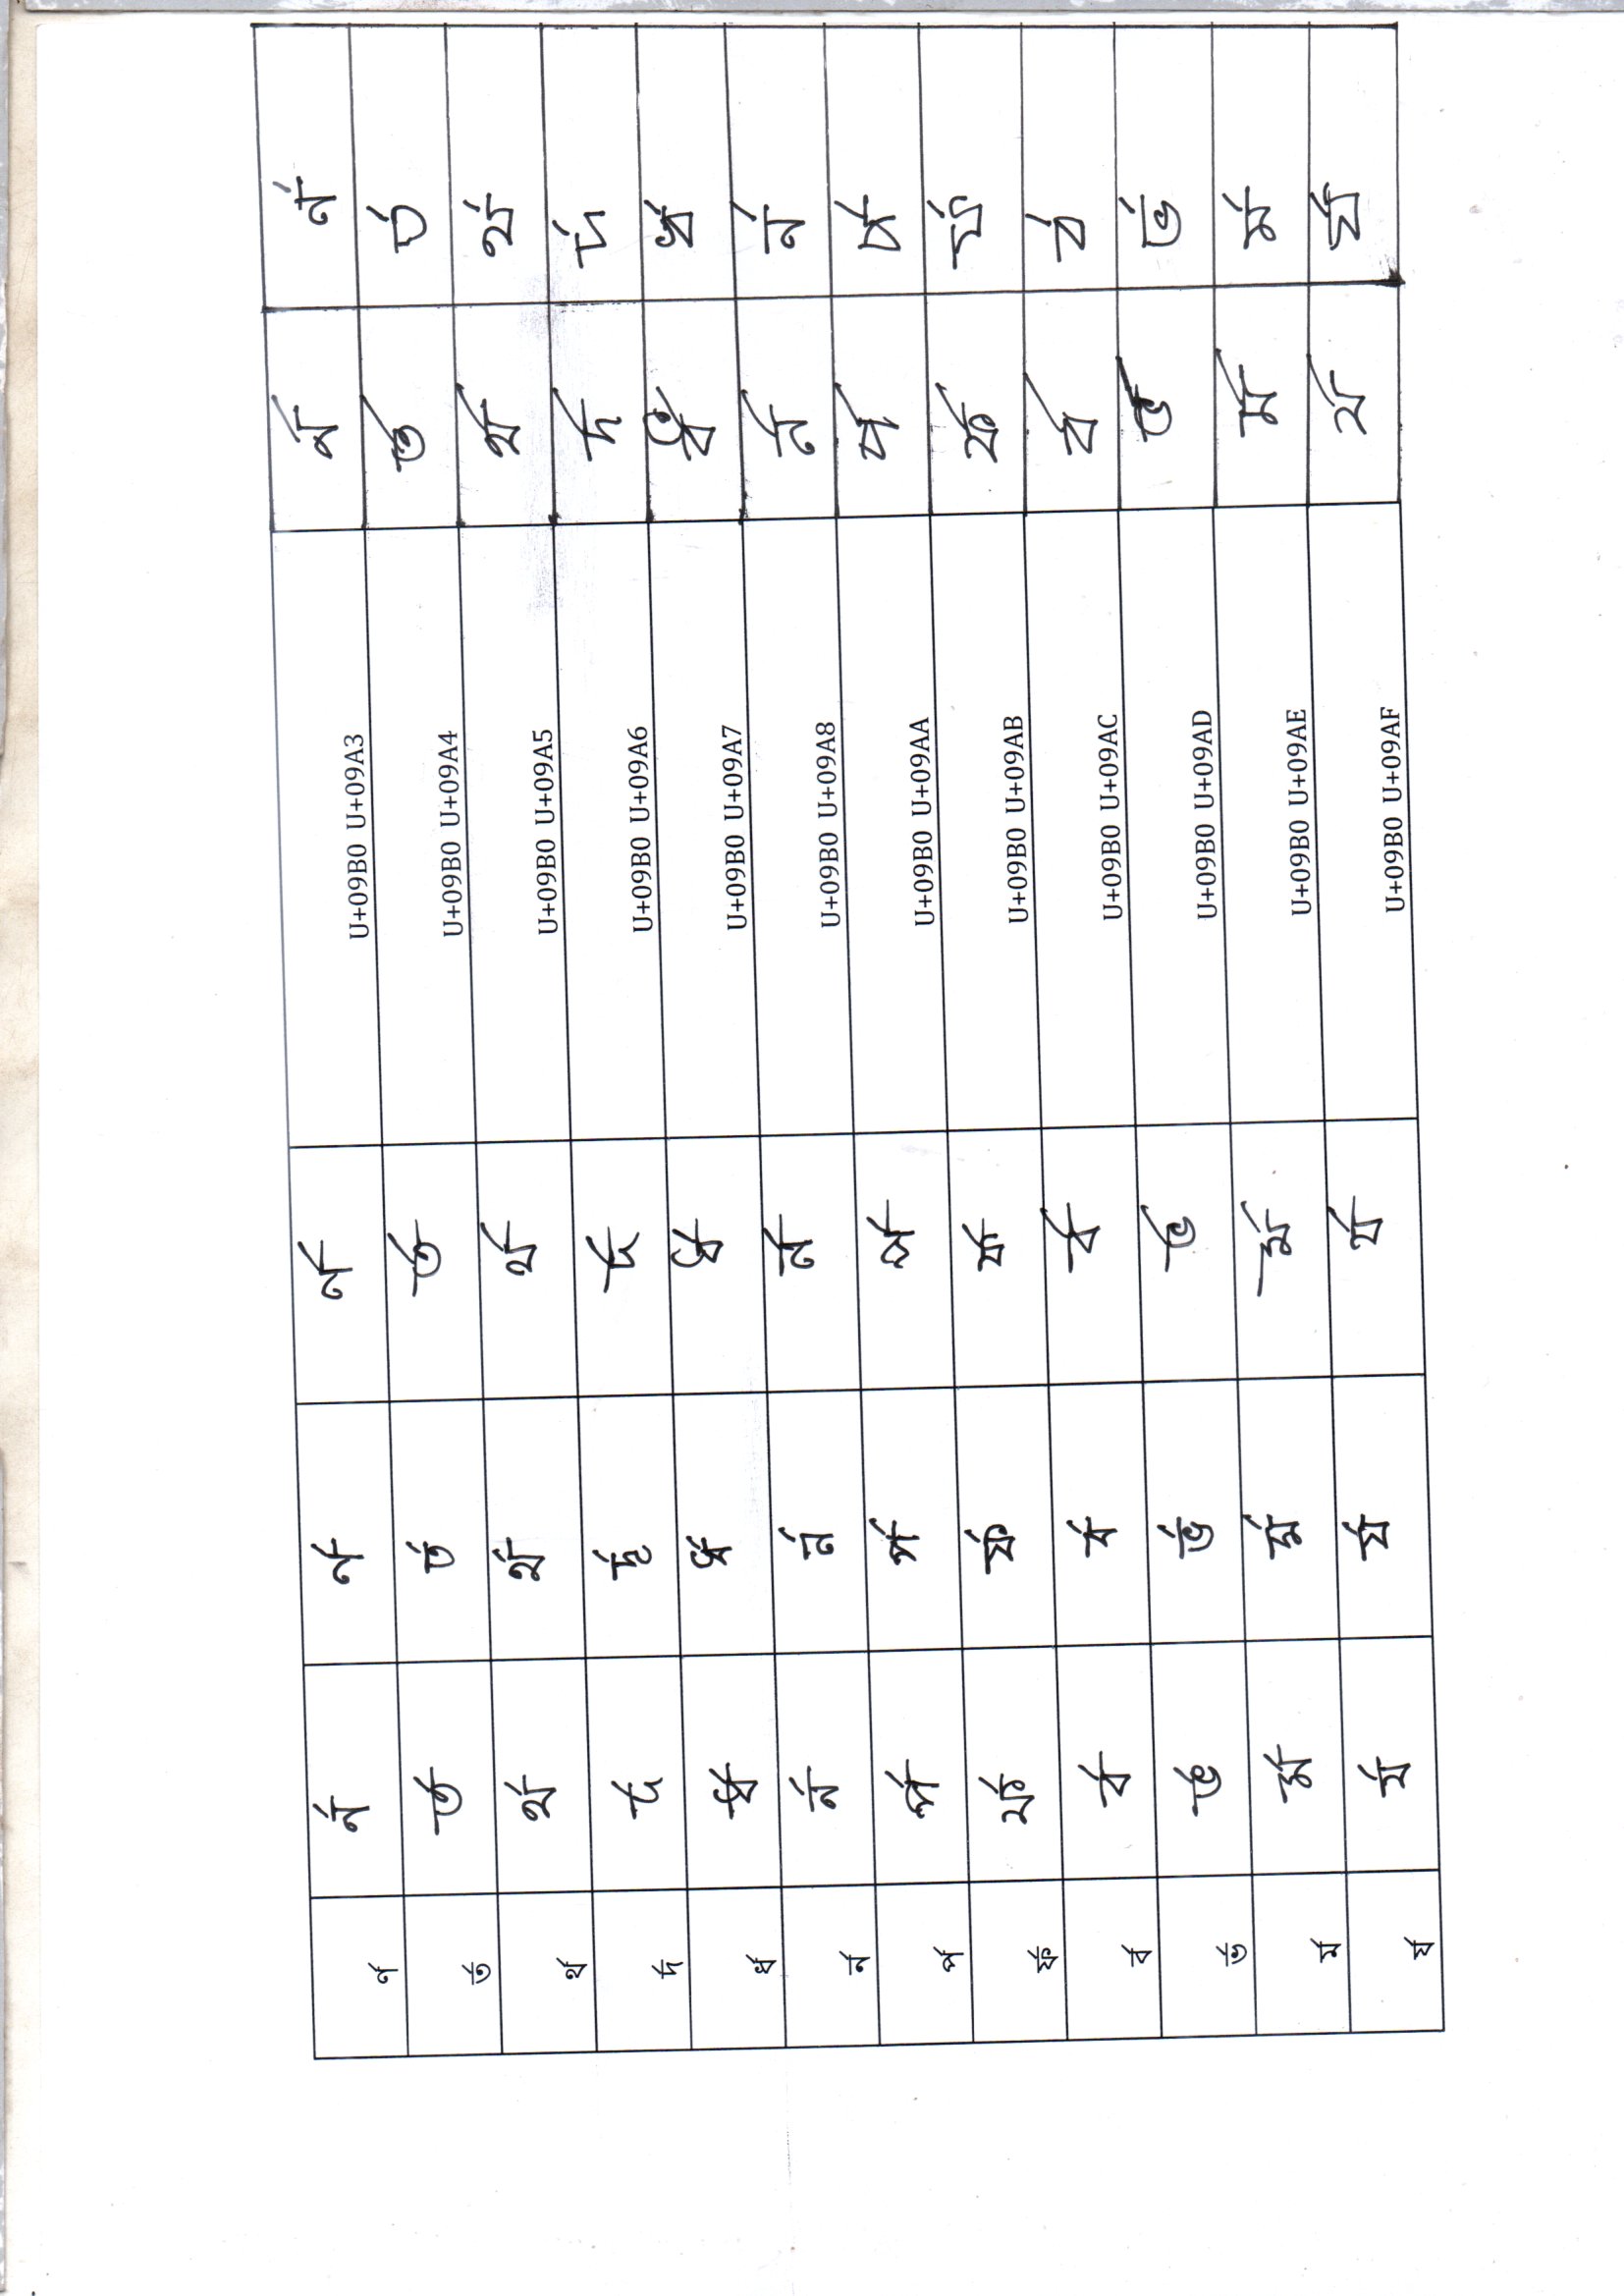 র্ণ র্ণ র্ণ র্ণ U+09B0 U+09A3 র্ণ র্ণ
র্ত র্ত র্ত র্ত U+09B0 U+09A4 র্ত র্ত
র্থ র্থ র্থ র্থ U+09B0 U+09A5 র্থ র্থ
র্দ র্দ র্দ র্দ U+09B0 U+09A6 র্দ র্দ
র্ধ র্ধ র্ধ র্ধ U+09B0 U+09A7 র্ধ র্ধ
র্ন র্ন র্ন র্ন U+09B0 U+09A8 র্ন র্ন
র্প র্প র্প র্প U+09B0 U+09AA র্প র্প
র্ফ র্ফ র্ফ র্ফ U+09B0 U+09AB র্ফ র্ফ
র্ব র্ব র্ব র্ব U+09B0 U+09AC র্ব র্ব
র্ভ র্ভ র্ভ র্ভ U+09B0 U+09AD র্ভ র্ভ
র্ম র্ম র্ম র্ম U+09B0 U+09AE র্ম র্ম
র্য র্য র্য র্য U+09B0 U+09AF র্য র্য